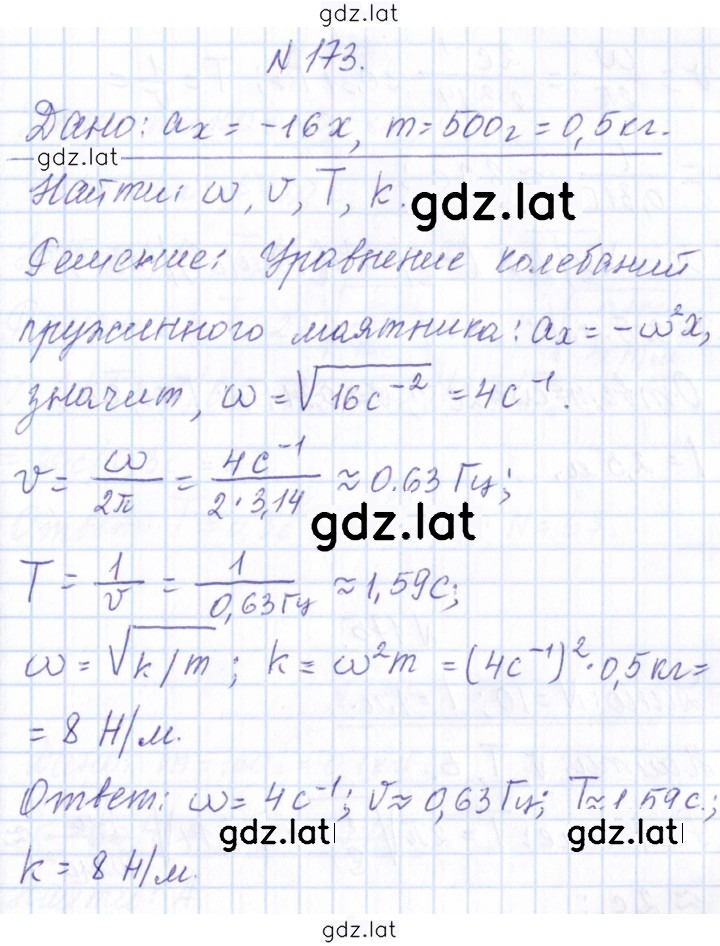 gdz.lat
N 173.
Дано: aₓ = -16x, m = 500г = 0,5 кг.
gdz.lat
Найти: ω, ν, T, k.
gdz.lat
Решение: Уравнение колебаний
пружинного маятника: aₓ = -ω²x,
значит, ω = √(16с⁻²) = 4с⁻¹.
ν = ω/2π = 4с⁻¹/2·3,14 ≈ 0.63 Гц;
gdz.lat
T = 1/ν = 1/0,63Гц ≈ 1,59с;
ω = √(k/m); k = ω²m = (4с⁻¹)²·0,5кг =
= 8 Н/м.
Ответ: ω = 4с⁻¹; ν ≈ 0,63 Гц; T ≈ 1 59с.;
gdz.lat gdz.lat
k = 8 Н/м.
gdz.lat